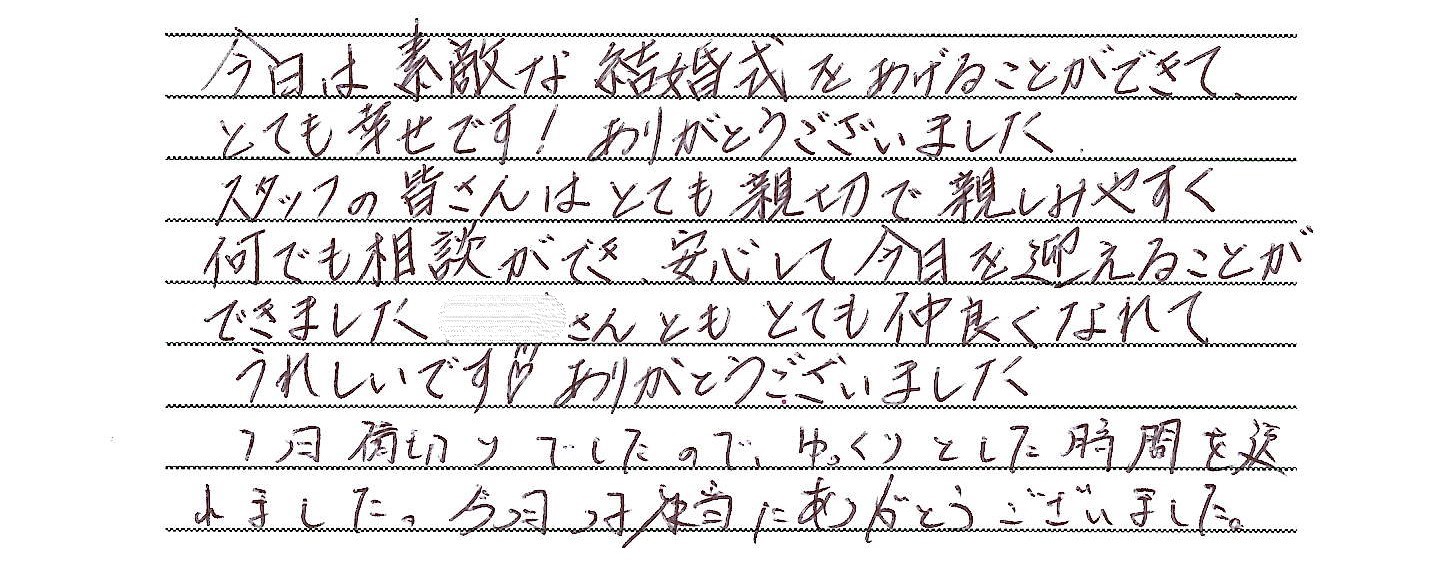 今日は素敵な結婚式をあげることができて、
とても幸せです！ありがとうございました
スタッフの皆さんはとても親切で親しみやすく
何でも相談ができ、安心して今日を迎えることが
できました さんともとても仲良くなれて
うれしいです♡ありがとうございました
1日貸切りでしたので、ゆっくりとした時間を送
れました。今日は本当にありがとうございました。